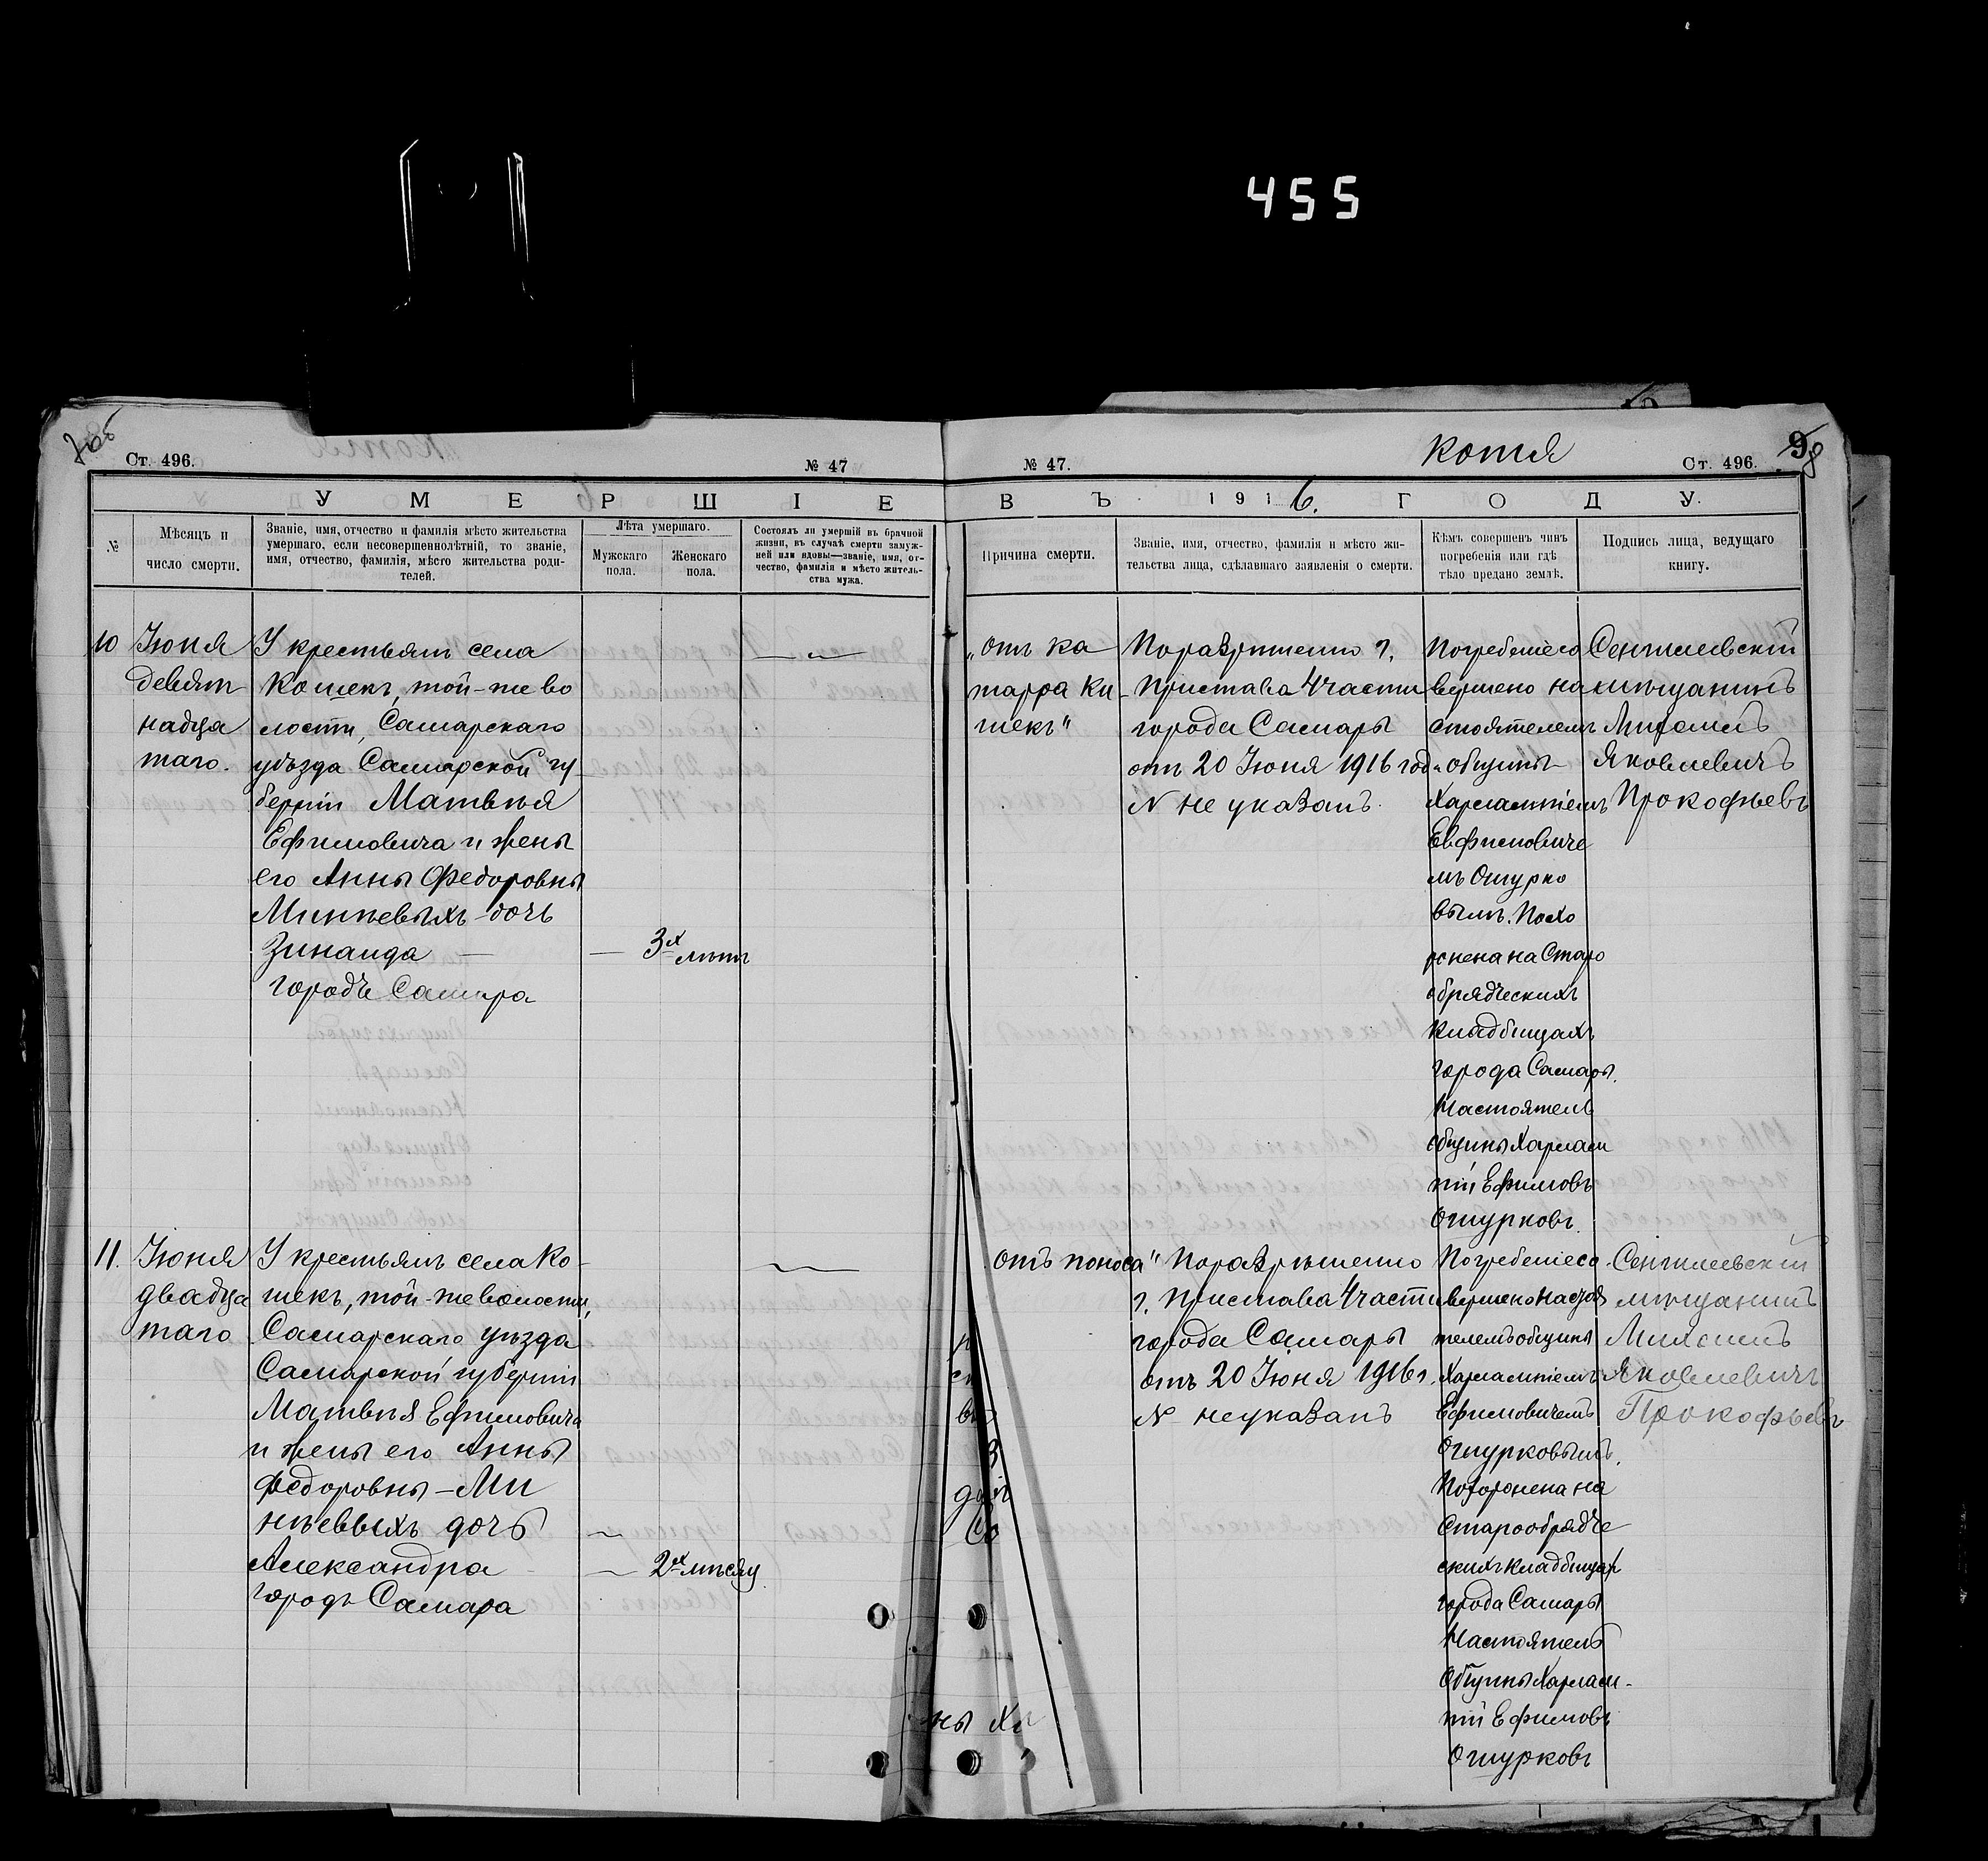 455
Ст. 496.
№ 47
№ 47.
копія
Ст. 496.
98
УМЕРШІЕ
ВЪ 1916. ГОДУ.
№
Мѣсяцъ и число смерти.
Званіе, имя, отчество и фамилія мѣсто жительства
умершаго, если несовершеннолѣтній, то званіе,
имя, отчество, фамилія, мѣсто жительства роди-
телей.
Лѣта умершаго.
Мужскаго пола.
Женскаго пола.
Состоялъ ли умершій въ брачной
жизни, въ случаѣ смерти замуж-
ней или вдовы—званіе, имя, от-
чество, фамилія и мѣсто житель-
ства мужа.
Причина смерти.
Званіе, имя, отчество, фамилія и мѣсто жи-
тельства лица, сдѣлавшаго заявленія о смерти.
Кѣмъ совершенъ чинъ
погребенія или гдѣ
тѣло предано землѣ.
Подпись лица, ведущаго
книгу.
10
Іюня
девят
надца
таго.
У крестьянъ села
Кошекъ, той-же во
лости, Самарскаго
уѣзда Самарской гу-
берніи Матвѣя
Ефимовича и жены
его Анны Федоровны
Минѣевыхъ-дочь
Зинаида —
городъ Самара
— 3х лѣтъ
„отъ ка
тарра Ки-
шекъ"
По разрѣшенію г.
Пристава 4 части
города Самары
отъ 20 Іюня 1916 года
N не указанъ.
Погребеніе со
вершено на
стоятелемъ
общины
Харлампіемъ
Евфимовиче
мъ Ошурко
вымъ. Похо
ронена на Старо
обрядческихъ
Кладбищахъ
города Самары.
Настоятель
общины Харлам
пій Ефимовъ
Ошурковъ.
Сенгилеевскій
мѣщанинъ
Михаилъ
Яковлевичъ
Прокофьевъ
11.
Іюня
двадца
таго
У крестьянъ села Ко-
шекъ, той-же волости,
Самарскаго уѣзда
Самарской губерніи
Матвѣя Ефимовича
и жены его Анны
Федоровны — Ми
нѣевыхъ дочь
Александра
городъ Самара
— 2х мѣсяц.
отъ поноса"
По разрѣшенію
г. Пристава 4 части
города Самары
отъ 20 Іюня 1916 г.
N не указанъ
Погребеніе со
вершено настоя
телемъ общины
Харлампіемъ
Ефимовичемъ
Ошурковымъ.
Похоронена на
Старообрядче
скихъ кладбищах
города Самары
Настоятель
Общины Харлам-
пій Ефимовъ
Ошурковъ
Сенгилеевскій
мѣщанинъ
Михаилъ
Яковлевичъ
Прокофьевъ